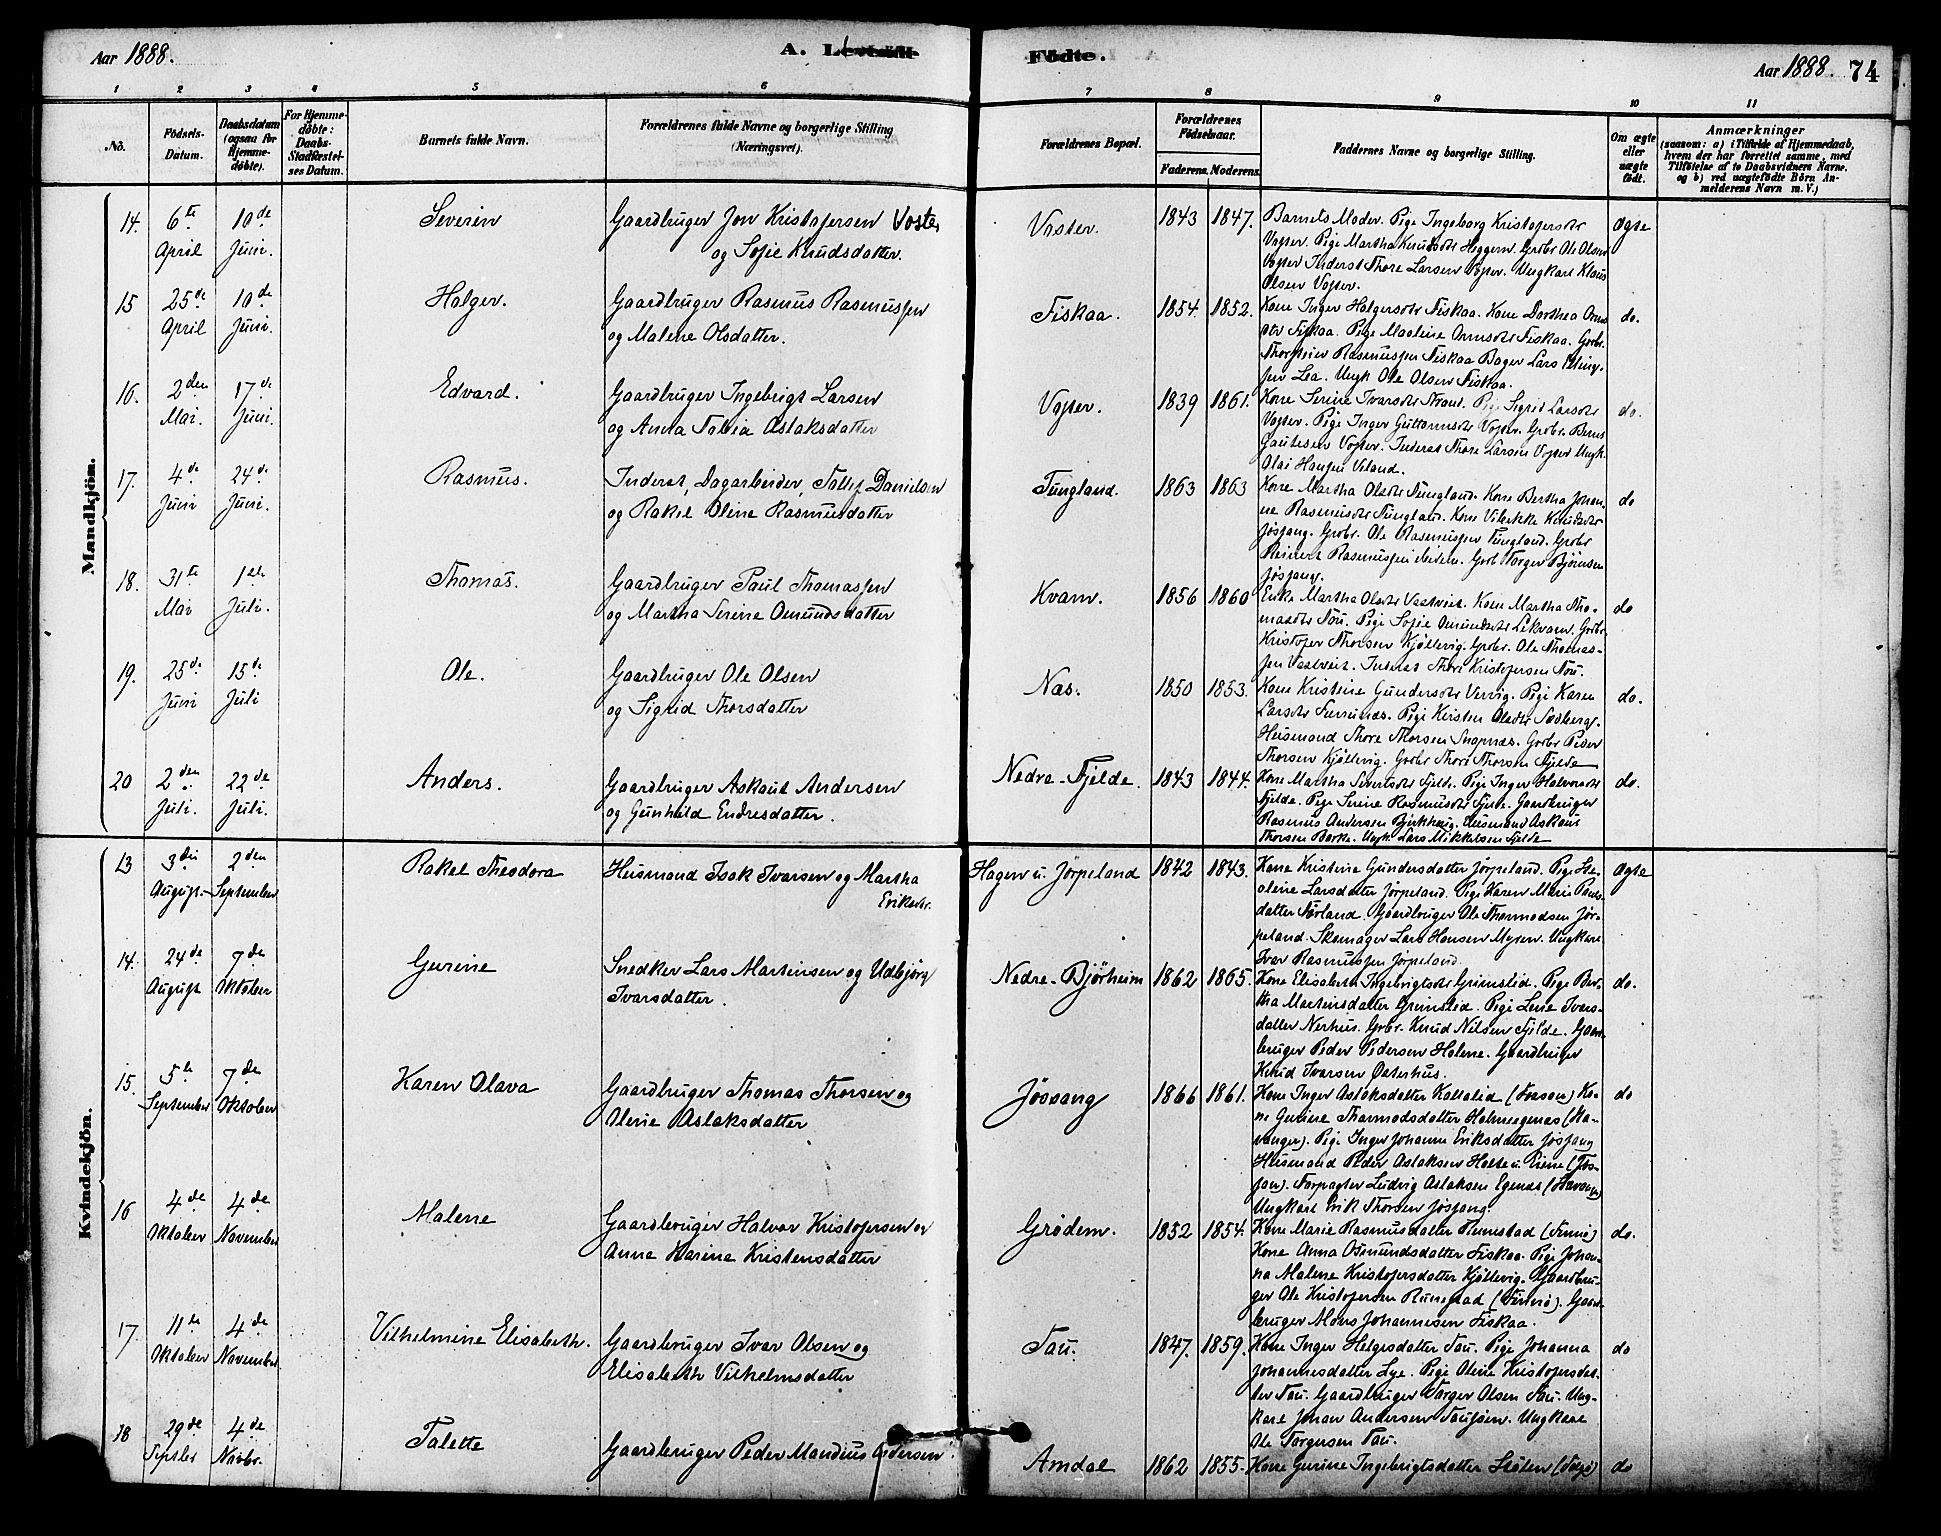 Aar 1888.
A. Levende
Födte.
Aar 1888.
74
1 2 3 4 5 6 7 8 9 10 11
No.
Födsels-Datum.
Daabsdatum (ogsaa for Hjemmedöbte).
For Hjemmedöbte: Daabs-Stadfæstelses Datum.
Barnets fulde Navn.
Forældrenes fulde Navne og borgerlige Stilling (Næringsvei).
Forældrenes Bopæl.
Forældrenes Födselsaar.
Faderens. Moderens.
Faddernes Navne og borgerlige Stilling.
Om ægte eller uægte födt.
Anmærkninger
(saasom: a) i Tilfælde af Hjemmedaab,
hvem der har forrettet samme, med
Tilföielse af to Daabsvidners Navne.
og b) ved uægtefödte Börn Anmelderens Navn m. V.)
Mandkjön.
14. 6te April 10de Juni. Severin
Gaardbruger Jon Kristofersen Voster
og Sofie Knudsdatter.
Voster. 1843 1847.
Barnets Moder. Pige Ingeborg Kristofersdtr
Voster. Pige Martha Knudsdtr Heggem. Grdbr Ole Olsen
Voster Inderst Thore Larsen Voster. Ungkarl Klaus
Olsen Voster.
Ægte
15 25de April 10de Juni. Holger.
Gaardbruger Rasmus Rasmussen
og Malene Olsdatter.
Fiskaa. 1854. 1852.
Kone Inger Holgersdtr Fiskaa. Kone Dorthea
Fiskaa. Pige Fiskaa. Grbr.
Rasmussen Fiskaa Bager Lars
Lea. Ungk Ole Olsen Fiskaa.
do.
16. 2den Mai. 17de Juni. Edvard.
Gaardbruger Ingebrigt Larsen
og Anna Tobia Aslaksdatter
Voster. 1839 1861.
Kone Serine Ivarsdtr Strand. Pige Sigrid Larsdtr
Voster. Pige Inger Guttormsdtr Voster. Grbr.
Gautesen Voster. Inderst Thore Larsen Voster Ungk.
Olai Hansen
do.
17. 4de Juni 24de Juni. Rasmus.
Inderst, Dagarbeider, Tollef Danielsen
og Rakel Oline Rasmusdatter
Tungland. 1863 1863
Kone Martha Olsdtr Tungland. Kone Bertha Johanne
Rasmusdtr Tungland. Kone Knudsdtr
Jøssang. Grbr. Ole Rasmussen Tungland. Grbr
Reinert Rasmussen ibidem. Grbr Torger Bjørnsen
Jøssang.
do
18. 31te Mai 1ste Juli. Thomas.
Gaardbruger Paul Thomassen
og Martha Serine Omundsdatter
Kvam. 1856 1860
Enke Martha Olsdtr Vastveit. Kone Martha Thomasdtr
Tou. Pige Sofie Omundsdtr Lekvam. Grbr.
Kristofer Thorsen Kjöllevig. Grbr. Ole Thomassen
Vastveit. Inderst Thore Kristofersen Tou.
do
19. 25de Juni 15de Juli Ole.
Gaardbruger Ole Olsen
og Sigrid Thorsdatter
Næs. 1850 1853.
Kone Kristine Gundersdtr Vervig. Pige Karen
Larsdtr Pige Kirsten Olsdtr Sedberg.
Husmand Thore Thorsen Grbr Peder
Thorsen Kjöllevig. Grbr Thore Thorsen Fjelde
do.
20 2den Juli. 22de Juli. Anders.
Gaardbruger Askaut Andersen
og Gunhild Endresdatter.
Nedre-Fjelde. 1843 1844.
Kone Martha Sivertsdtr Fjelde. Pige Inger Halvorsdtr
Fjelde. Pige Serine Rasmusdtr Fjelde. Gaardbruger
Rasmus Andersen Husmand Askaut
Thorsen Barke. Ungk. Lars Mikkelsen Fjelde
do.
Kvindekjön.
13 3die August 2den September Rakel Theodora
Husmand Isak Ivarsen og Martha
Eriksdtr.
Hagen u. Jørpeland 1842 1843.
Kone Kristine Gundersdatter Jørpeland. Pige
Larsdatter Jørpeland. Pige Karen Marie
datter Norland. Gaardbruger Ole Thormodsen Jørpeland.
Skomager Lars Hansen Myren. Ungkarl
Ivar Rasmussen Jørpeland.
Ægte
14. 24de August 7de Oktober Gurine
Snedker Lars Martinsen og Udbjørg
Ivarsdatter.
Nedre-Bjørheim 1862 1865.
Kone Elisabeth Ingebrigtsdtr Grimslid. Pige Bertha
Martinsdatter Grimslid. Pige Lene Ivarsdatter
Nerhus. Grbr. Knud Nilsen Fjelde. Gaardbruger
Peder Pedersen Halene. Gaardbruger
Knud Ivarsen Østerhus.
do.
15. 5te September 7de Oktober Karen Olava
Gaardbruger Thomas Thorsen og
Olene Aslaksdatter
Jøssang 1866 1861.
Kone Inger Aslaksdatter Kallalid (Fossan) Kone
Gurine Thormodsdatter Holmegenæs (Stavanger).
Pige Inger Johanne Eriksdatter Jøssang
Husmand Peder Aslaksen Holte u. (Fossan).
Forpagter Ludvig Aslaksen Egenæs (Stavang.)
Ungkarl Erik Thorsen Jøssang.
do
16 4de Oktober 4de November Malene
Gaardbruger Halvor Kristofersen og
Anna Karine Kristensdatter
Grødem. 1852 1854.
Kone Marie Rasmusdatter Runestad (Finnø)
Kone Anna Osmundsdatter Fiskaa. Pige Johanna
Malene Kristofersdatter Kjöllevig. Gaardbruger
Ole Kristofersen Runestad (Finnø). Gaardbruger
Mons Johannesen Fiskaa.
do.
17. 11te Oktober 4de November Vilhelmine Elisabeth.
Gaardbruger Ivar Olsen og
Elisabeth Vilhelmsdatter
Tau. 1847. 1859.
Kone Inger Helgesdatter Tau. Pige Johanna
Johannesdatter Lye. Pige Oline Kristofersdatter
Tau. Gaardbruger Torger Olsen Tau. Ungkarl
Johan Andersen Tausøen. Ungkarl
Ole Torgersen Tau.
do
18 29de Septbr 4de Novbr. Talette
Gaardbruger Peder Mandius Pedersen
Amdal 1862 1855.
Kone Gurine Ingebrigtsdatter Stølen
do